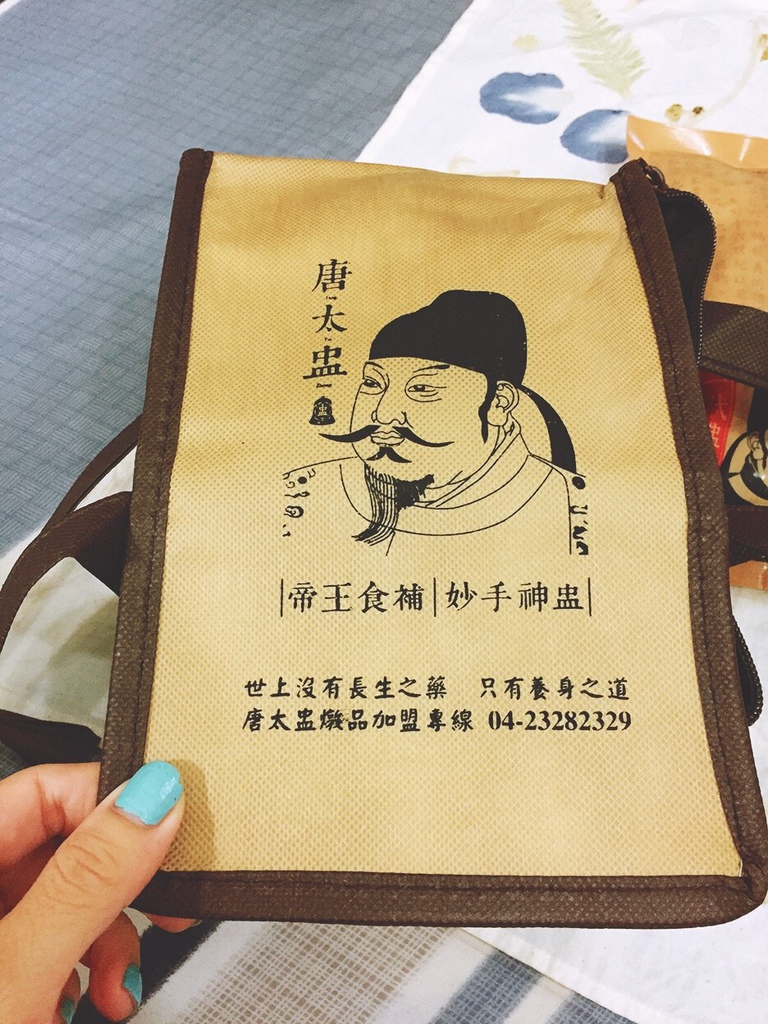 唐太盅
盅
帝王食補|妙手神盅
世上沒有長生之藥 只有養身之道
唐太盅燉品加盟專線 04-23282329